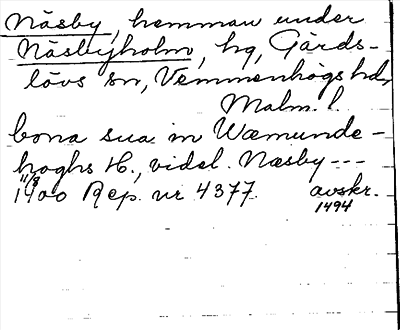 Näsby, hemman under
Näsbyholm, hg, Gärds-
lövs sn, Vemmenhögs hd,
Malm. l.
bona sua in Wæmunde-
hoghs H., videl. Næsby ---
11/8
1400 Rep. nr 4377. avskr.
1494